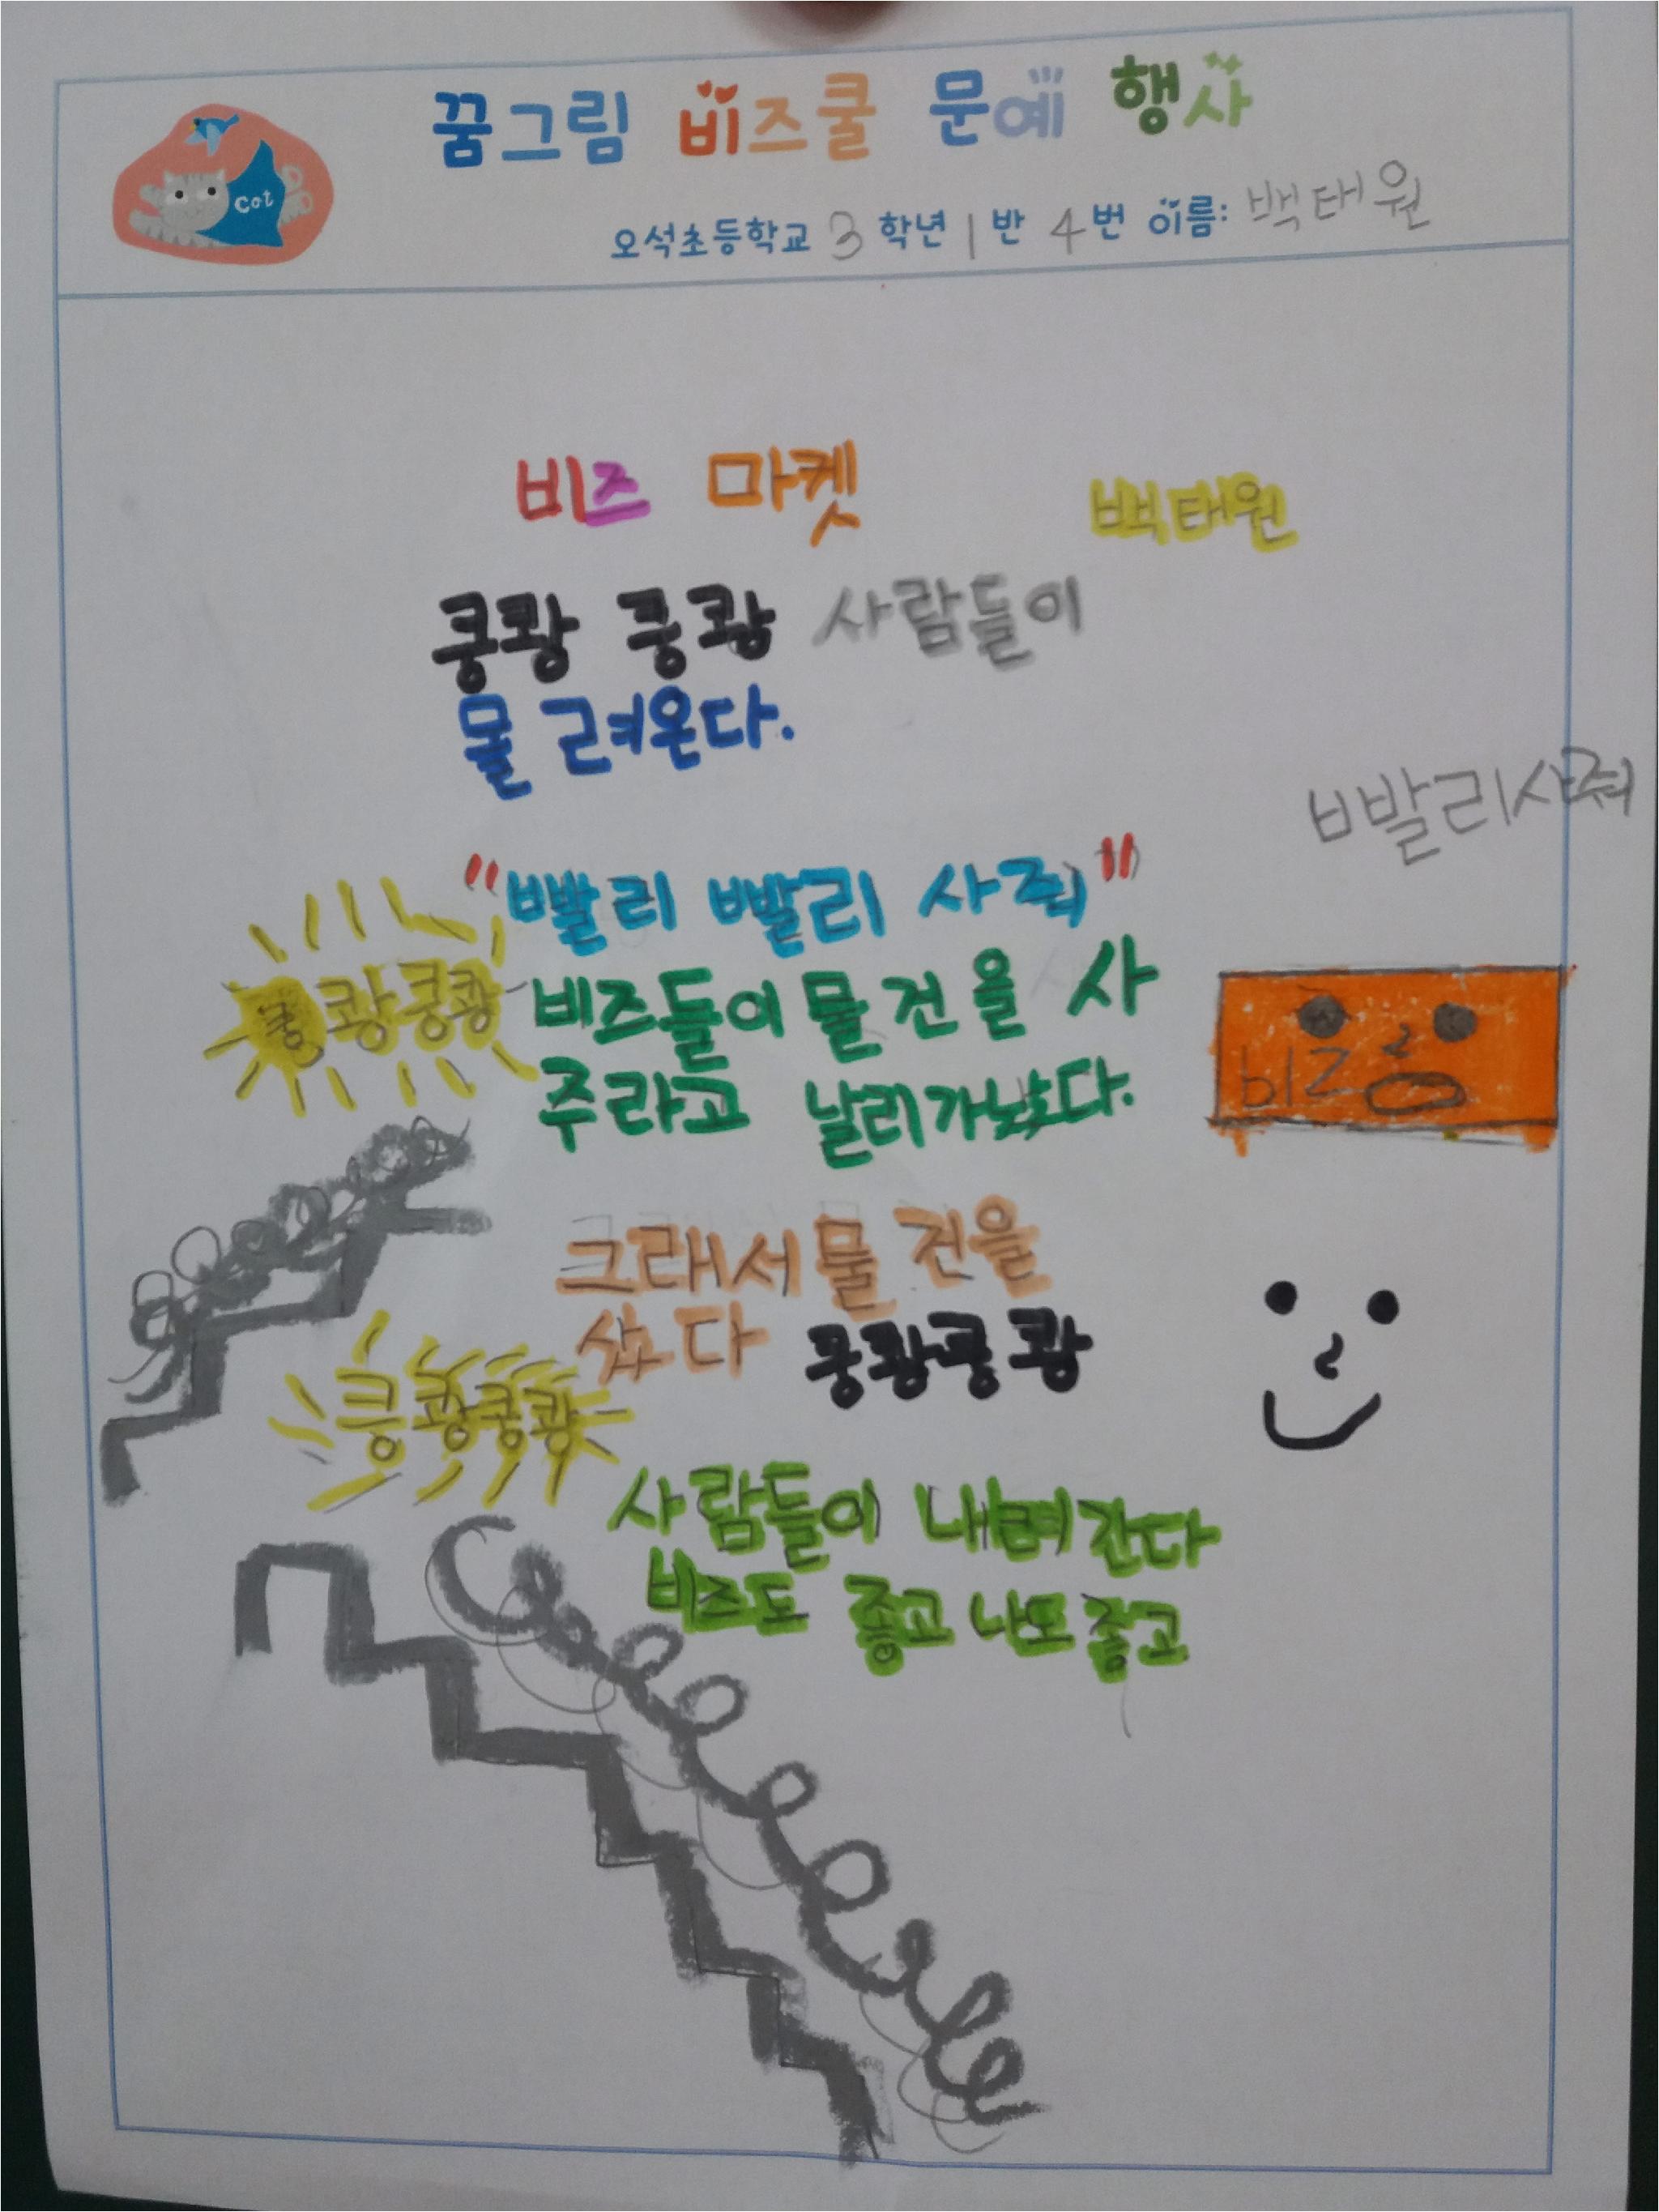 꿈그림 비즈쿨 문예 행사
cat
오석초등학교 3 학년 1 반 4 번 이름: 백태원
비즈 마켓
백태원
쿵쾅 쿵쾅 사람들이
물 려온다.
빨리사줘
"빨리 빨리 사줘"
쿵쾅쿵쾅
비즈들이 물건을 사
주라고 날리가났다.
비즈
그래서 물건을
샀다 쿵쾅쿵쾅
쿵쾅쿵쾅
사람들이 내려간다
비즈도 좋고 나도 좋고